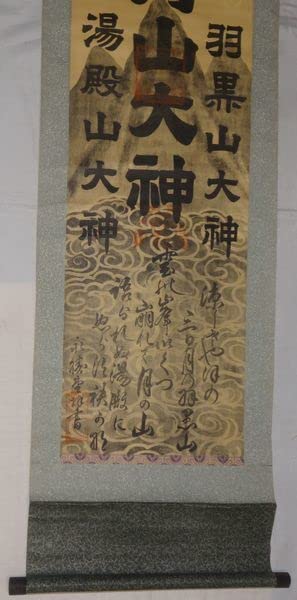 羽黒山大神
月山大神
湯殿山大神
涼しさやほの
三日月の羽黒山
雲の峯いくつ
崩れて月の山
語られぬ湯殿に
ぬらす袂かな